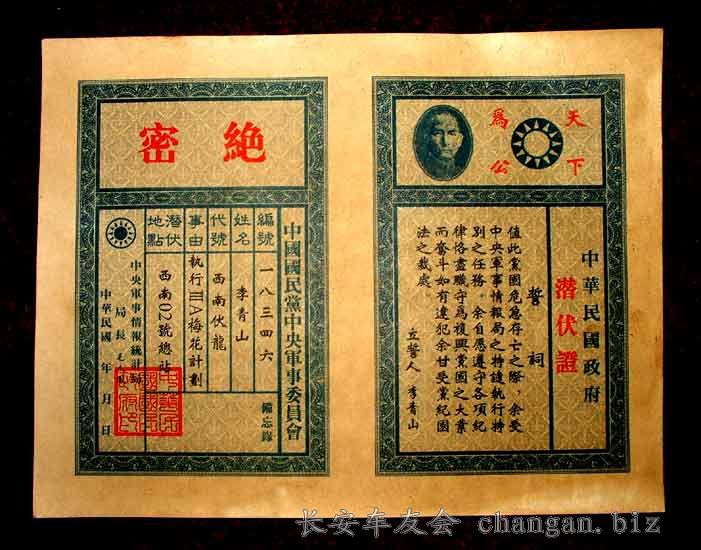 天下
爲公
中華民國政府
潛伏證
誓祠
值此黨國危急存亡之際，余受
中央軍事情報局之特諾執行特
别之任務。余自愿遵守各項紀
律恪盡職守爲復興黨國之大業
而奮斗如有違犯余甘受黨紀國
法之裁處。
立誓人 李青山
絶密
中國國民黨中央軍事委員會 備忘錄
編號 一八三四六
姓名 李青山
代號 西南伏龍
事由 執行IIIA梅花計劃
潛伏地點 西南02號總站
中央軍事情報統計局
局長
中華民國 年 月 日
长安车友会 changan.biz